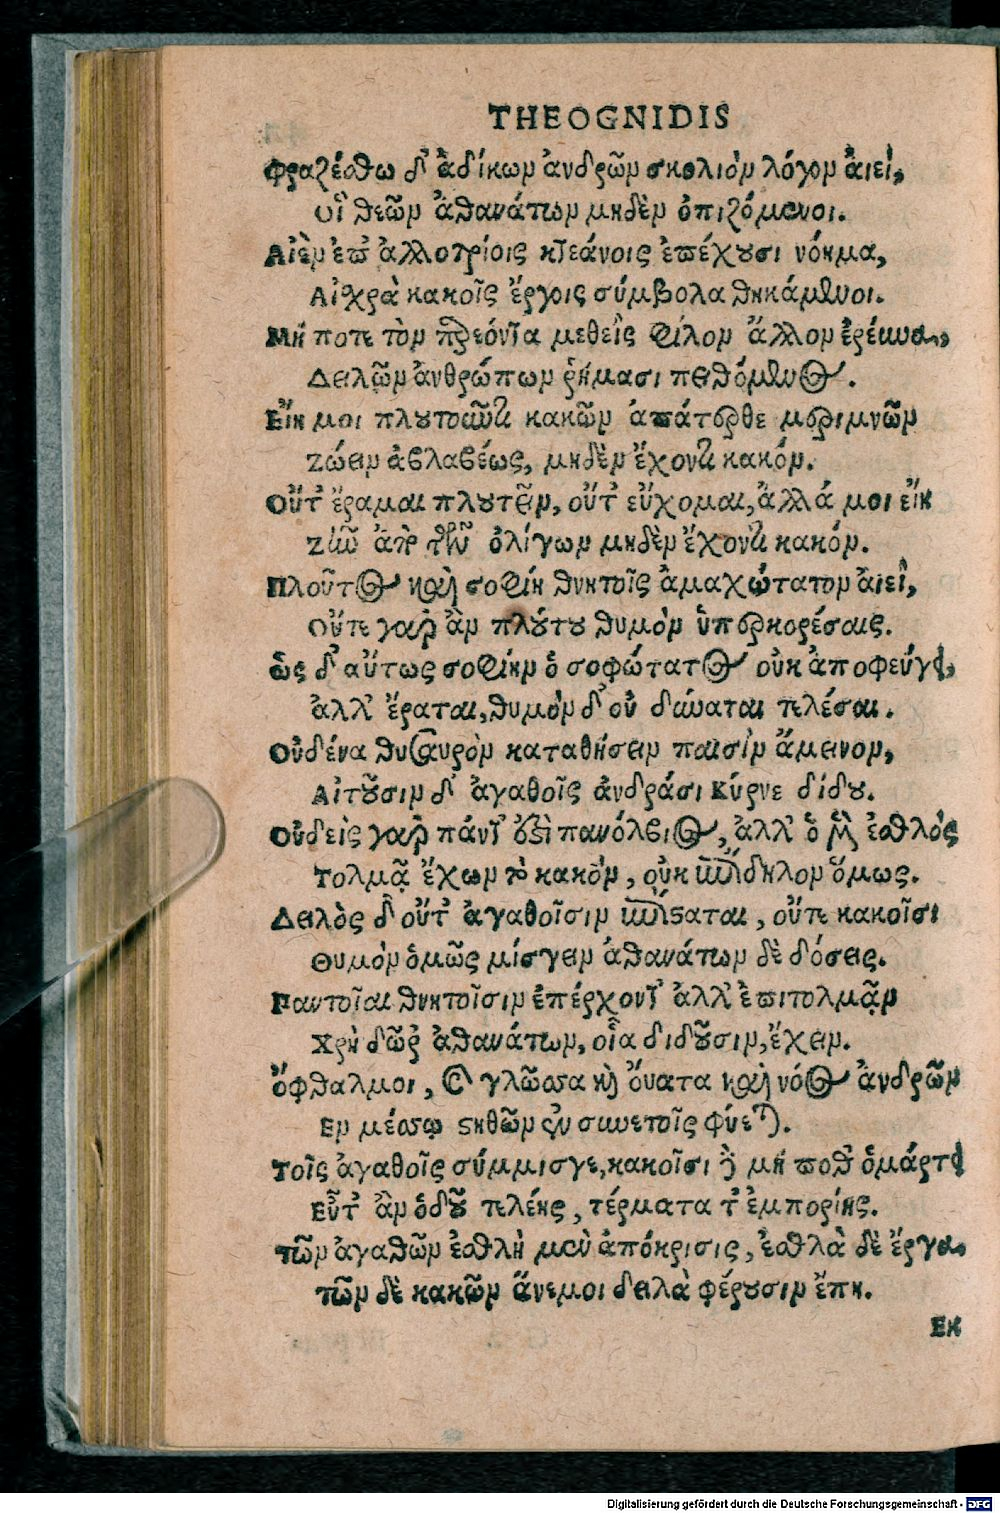 THEOGNIDIS
Φραζέσθω δ' ἀδίκων ἀνδρῶν σκολιὸν λόγον αἰεὶ,
οἳ θεῶν ἀθανάτων μηδὲν ὀπιζόμενοι.
Αἰὲν ἐπ' ἀλλοτρίοις κτεάνοις ἐπέχουσι νόημα,
Αἰχρὰ κακοῖς ἔργοις σύμβολα θηκάμενοι.
Μή ποτε τὸν παρεόντα μεθεὶς φίλον ἄλλον ἐρεύνα,
Δειλῶν ἀνθρώπων ῥήμασι πειθόμενος.
Εἴη μοι πλουτοῦντι κακῶν ἀπάτερθε μεριμνῶν
Ζώειν ἀβλαβέως, μηδὲν ἔχοντι κακόν.
Οὔτ' ἔραμαι πλουτεῖν, οὔτ' εὔχομαι, ἀλλά μοι εἴη
Ζῆν ἀπὸ τῶν ὀλίγων μηδὲν ἔχοντι κακόν.
Πλοῦτος καὶ σοφίη θνητοῖς ἀμαχώτατον αἰεὶ,
Οὔτε γὰρ ἂν πλούτου θυμὸν ὑπερκορέσαις.
ὣς δ' αὔτως σοφίην ὁ σοφώτατος οὐκ ἀποφεύγει,
ἀλλ' ἔραται, θυμὸν δ' οὐ δύναται τελέσαι.
Οὐδένα θησαυρὸν καταθήσειν παισὶν ἄμεινον,
Αἰτοῦσιν δ' ἀγαθοῖς ἀνδράσι Κύρνε δίδου.
Οὐδεὶς γὰρ πάντ' ἐστὶ πανόλβιος, ἀλλ' ὁ μὲν ἐσθλὸς
Τολμᾷ ἔχων τὸ κακὸν, οὐκ ἐπίδηλον ὅμως.
Δειλὸς δ' οὔτ' ἀγαθοῖσιν ἐπίσταται, οὔτε κακοῖσι
Θυμὸν ὁμῶς μίσγειν ἀθανάτων δὲ δόσεις.
Παντοῖαι θνητοῖσιν ἐπέρχοντ' ἀλλ' ἐπιτολμᾷν
Χρὴ δῶρ' ἀθανάτων, οἷα διδοῦσιν, ἔχειν.
ὄφθαλμοι, καὶ γλῶσσα καὶ ὄυατα καὶ νόος ἀνδρῶν
Εν μέσσῳ στηθῶν ἐν συνετοῖς φύεται.
Τοῖς ἀγαθοῖς σύμμισγε, κακοῖσι δὲ μή ποθ' ὁμάρτει
Εὖτ' ἂν ὁδοῦ τελέης, τέρματα τ' ἐμπορίης.
τῶν ἀγαθῶν ἐσθλὴ μὲν ἀπόκρισις, ἐσθλὰ δὲ ἔργα,
τῶν δὲ κακῶν ἄνεμοι δειλὰ φέρουσιν ἔπη.
Εκ
Digitalisierung gefördert durch die Deutsche Forschungsgemeinschaft - DFG